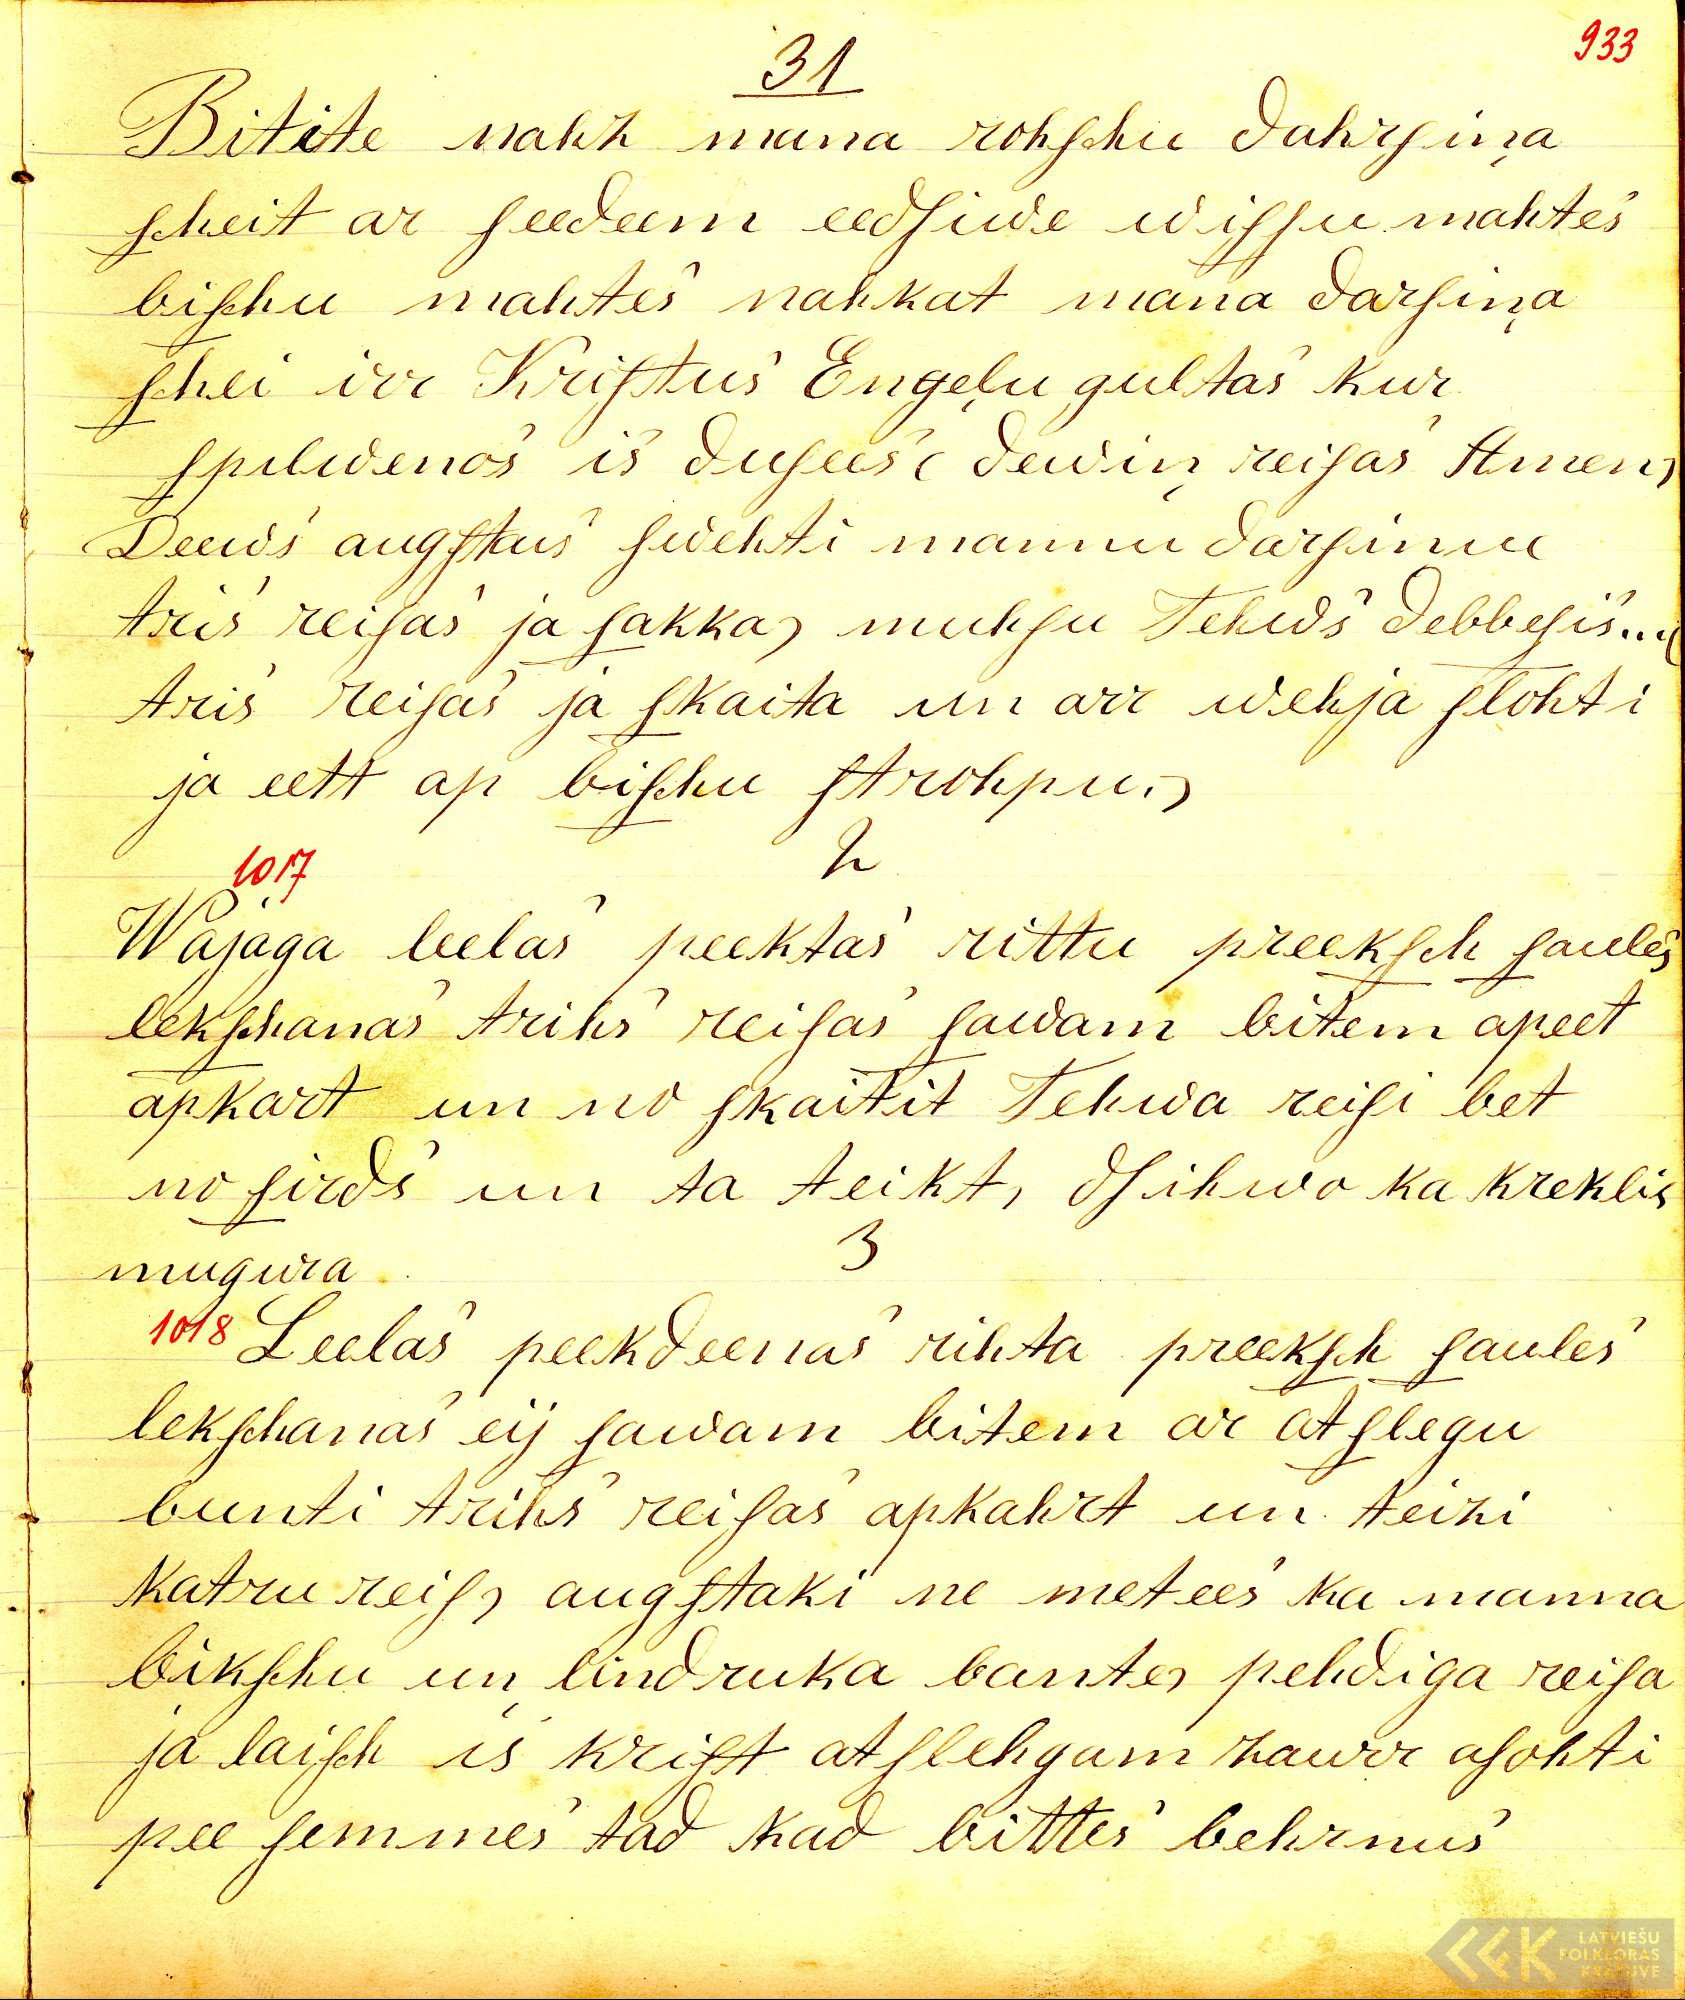 933
31
Bitite nahk mana rohſchu dahrſiņa
ſcheit ar ſeedeem eedſiwe wiſſu mahtes
biſchu mahtes nahkat mana darſiņa
ſchei irr Kriſtus Engeļu gultas kur
ſpilwenos is duſees ( dewiņ reiſas Amen,
Deews augſtais ſwehti mannu darſinu
tris reiſas ja ſakka) muhſu Tehws debbeſis...(
tris reiſas ja ſkaita un arr wehja ſlohti
ja eett ap biſchu ſtrohpu.)
2
1017
Wajaga leelas peektas rittu preekſch ſaules
lekſchanas trihs reiſas ſawam bitem apeet
apkart un no ſkaitit Tehwa reiſi bet
no ſirds un ta teikt, dſihwo ka kreklis
3
mugura
1018 Leelas peekdeenas rihta preekſch ſaules
lekſchanas eij ſawam bitem ar atſlegu
bunti trihs reiſas apkahrt un teizi
katru reiſ, augſtaki ne metees ka manna
bikſchu uņ lindruka bante, pehdiga reiſa
ja laiſch is kriſt atſlehgam zaurr aſohti
pee ſemmes tad kad bittes behrnus
LATVIEŠU
FOLKLORAS
KRĀTUVE